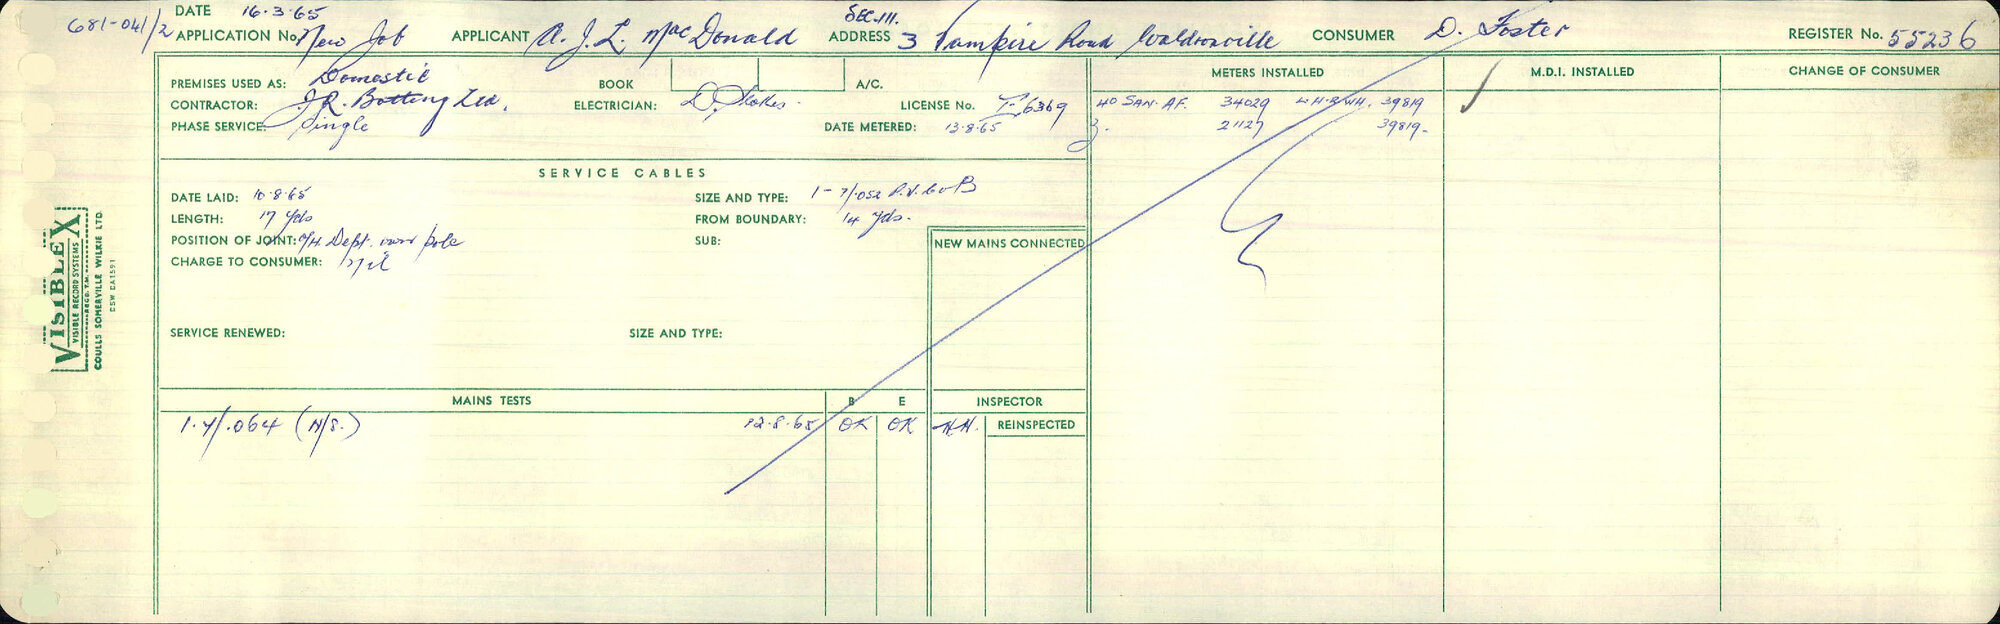 681-041/2
DATE 16.3.65
SEC.111.
APPLICATION No. New Job APPLICANT A. J. L. MacDonald ADDRESS 3 Vampire Road Waldronville CONSUMER D. Foster REGISTER No. 55236
PREMISES USED AS: Domestic BOOK A/C.
CONTRACTOR: J.R. Botting Ltd. ELECTRICIAN: D. Stokes. LICENSE No. T-6369
PHASE SERVICE: Single DATE METERED: 13.8.65
METERS INSTALLED M.D.I. INSTALLED CHANGE OF CONSUMER
40 SAN.AF. 34029 39819
21127 39819-
SERVICE CABLES
DATE LAID: 10.8.65 SIZE AND TYPE: 1-7/.052
LENGTH: 17 yds FROM BOUNDARY: 14 yds.
POSITION OF JOINT: O/H Dept. pole SUB:
CHARGE TO CONSUMER: Nil
NEW MAINS CONNECTED
SERVICE RENEWED: SIZE AND TYPE:
MAINS TESTS B E INSPECTOR
1.7/.064 (N/S.) 12.8.65 OK OK H.H. REINSPECTED
VISIBLEX
VISIBLE RECORD SYSTEMS
REGD. T.M.
COULLS SOMERVILLE WILKIE LTD.